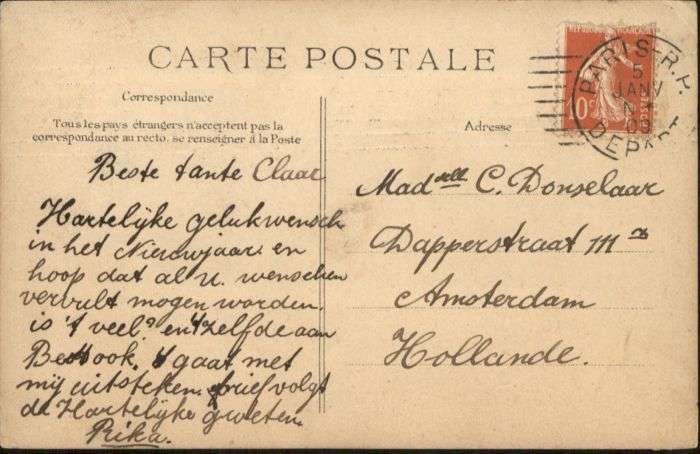 CARTE POSTALE
Correspondance
Tous les pays étrangers n'acceptent pas la
correspondance au recto. se renseigner à la Poste
Adresse
RÉPUBLIQUE FRANÇAISE
10c
PARIS-R.P.
5
JANV
09
DEPART
Beste tante Claar
Hartelijke gelukwensch
in het Nieuwjaar. en
hoop dat al U. wenschen
vervult mogen worden.
is 't veel? en 't zelfde aan
Bet ook. 't gaat met
mij uitsteken. brief volgt
de Hartelijke groeten.
Rika.
Madell C. Donselaar
Dapperstraat 111
Amsterdam
Hollande.